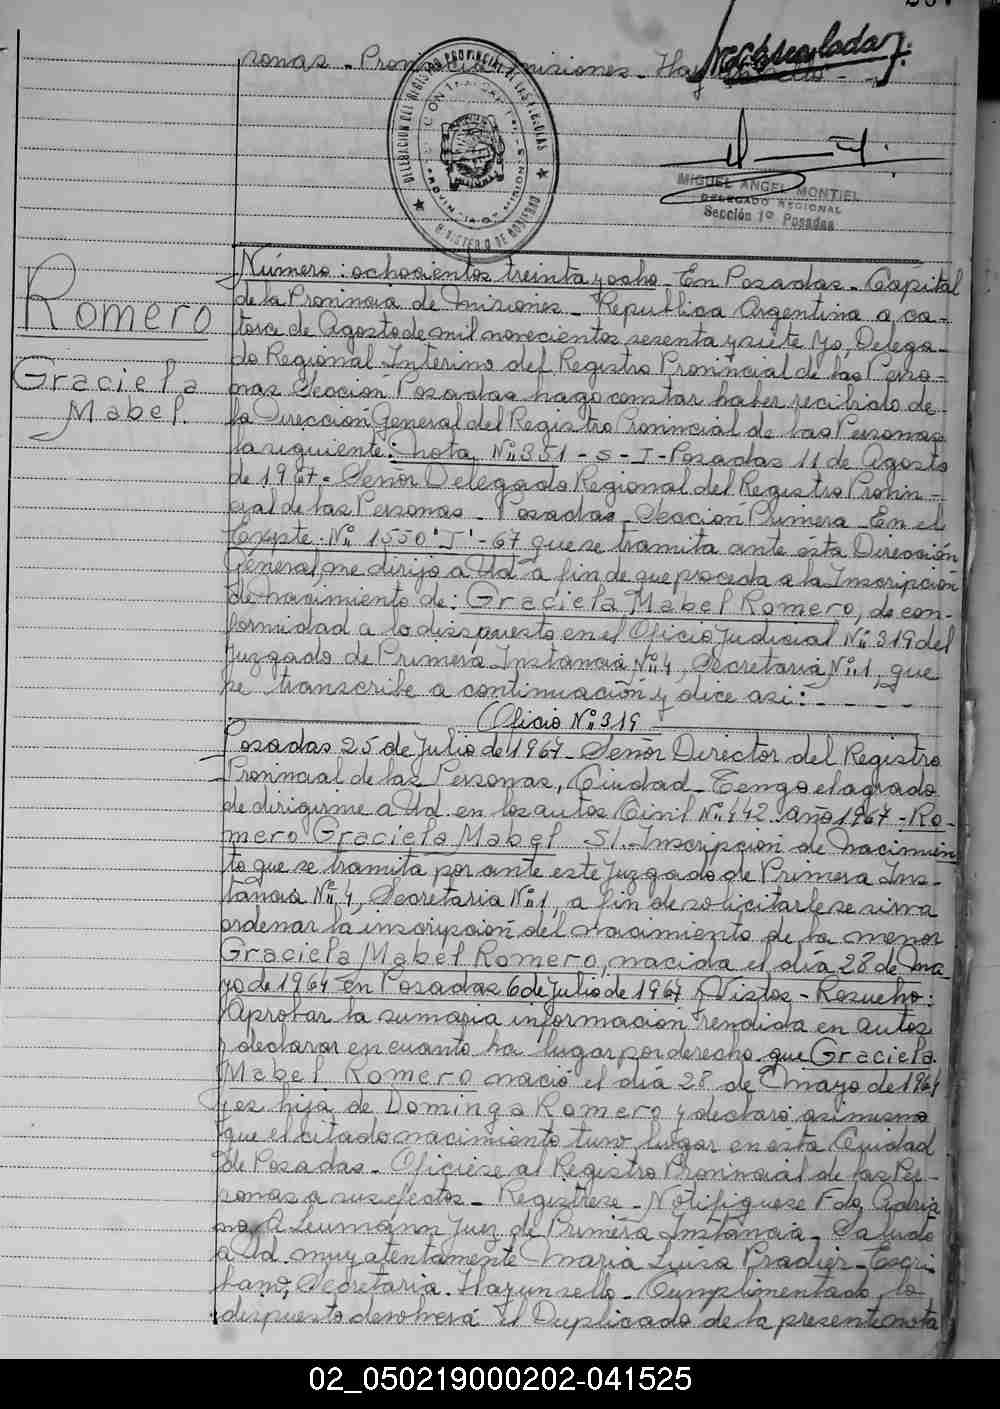 sonas - Provincia Misiones - Hay
DELEGACION DEL REGISTRO PROVINCIAL DE LAS PERSONAS
PROVINCIA DE MISIONES
MINISTERIO DE GOBIERNO
MIGUEL ANGEL MONTIEL
DELEGADO REGIONAL
Sección 1º Posadas
Romero
Graciela
Mabel.
Número: ochocientos treinta y ocho - En Posadas - Capital
de la Provincia de Misiones - Republica Argentina a ca-
torce de Agosto de mil novecientos sesenta y siete Yo, Delega-
do Regional Interino del Registro Provincial de las Perso-
nas Sección Posadas hago constar haber recibido de
la Dirección General del Registro Provincial de las Personas
la siguiente: Nota Nº 351 - S - I - Posadas 11 de Agosto
de 1967 - Señor Delegado Regional del Registro Provin-
cial de las Personas - Posadas - Sección Primera - En el
Expte. Nº 1550 "J" - 67 que se tramita ante ésta Dirección
General, me dirijo a Ud a fin de que proceda a la Inscripción
de nacimiento de: Graciela Mabel Romero, de con-
formidad a lo dispuesto en el Oficio Judicial Nº 319 del
Juzgado de Primera Instancia Nº 4, Secretaria Nº 1, que
se transcribe a continuación y dice asi: - - - -
Oficio Nº 319
Posadas 25 de Julio de 1967 - Señor Director del Registro
Provincial de las Personas, Ciudad - Tengo el agrado
de dirigirme a Ud. en los autos Civil Nº 442 año 1967 - Ro-
mero Graciela Mabel S/. Inscripción de Nacimien-
to que se tramita por ante este Juzgado de Primera Ins-
tancia Nº 4, Secretaria Nº 1, a fin de solicitarle se sirva
ordenar la inscripción del nacimiento de la menor
Graciela Mabel Romero, nacida el día 28 de Ma-
yo de 1964 En Posadas 6 de Julio de 1967 Y Vistos - Resuelvo:
Aprobar la sumaria información rendida en autos
y declarar en cuanto ha lugar por derecho que Graciela
Mabel Romero nació el día 28 de Mayo de 1964
y es hija de Dominga Romero y declaro asimismo
que el citado nacimiento tuvo lugar en esta Ciudad
de Posadas - Oficiese al Registro Provincial de las Per-
sonas a sus efectos - Registrese - Notifiquese Fdo, Adria
no A Leumann Juez de Primera Instancia - Saludo
a Ud. muy atentamente Maria Luisa Pradier - Escri-
bano, Secretaria. Hay un sello - Cumplimentado lo
dispuesto devolverá el Duplicado de la presente nota
02_050219000202-041525